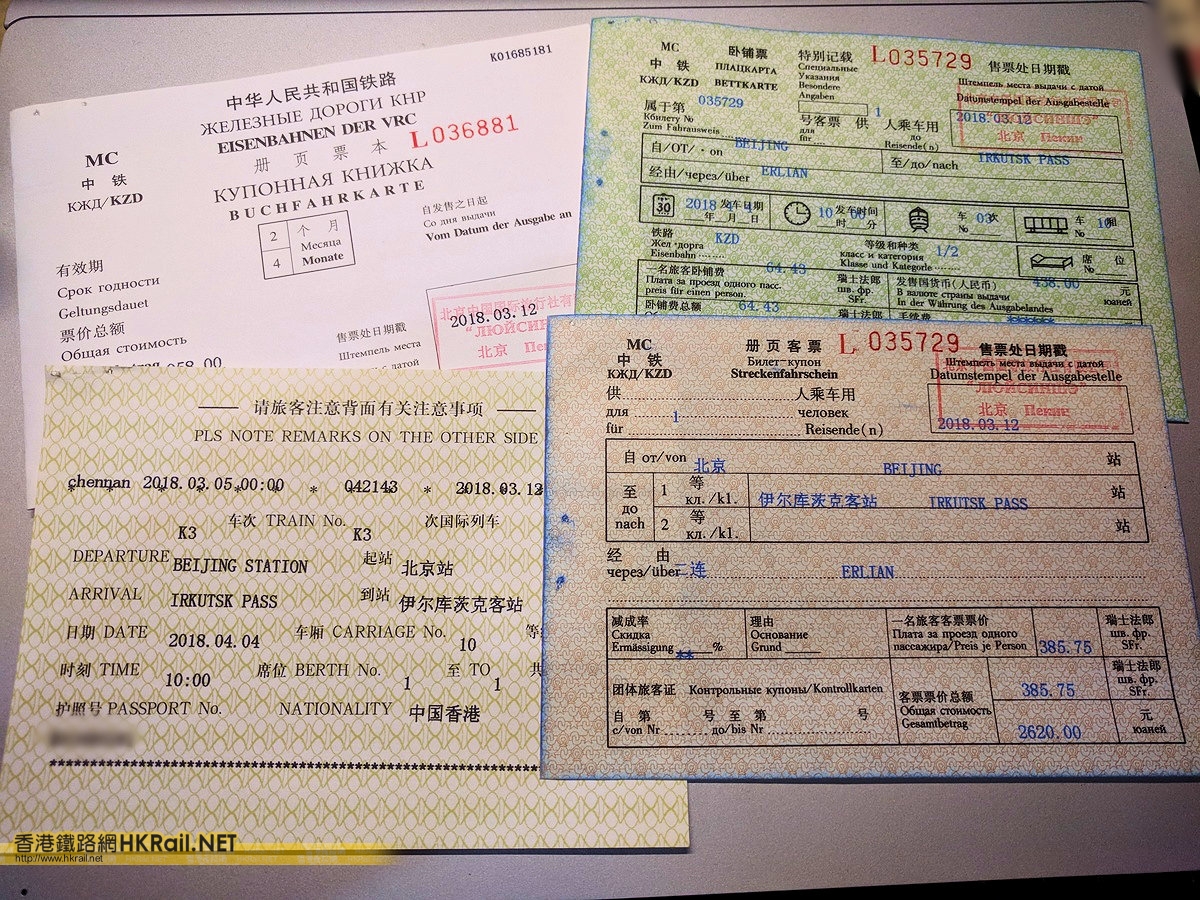 K01685181
中华人民共和国铁路
ЖЕЛЕЗНЫЕ ДОРОГИ КНР
EISENBAHNEN DER VRC
MC
中 铁
КЖД/KZD
册 页 票 本
L036881
КУПОННАЯ КНИЖКА
BUCHFAHRKARTE
2 个 月
Месяца
4 Monate
自发售之日起
Со дня выдачи
Vom Datum der Ausgabe an
有效期
Срок годности
Geltungsdauet
票价总额
Общая стоимость
058.00
售票处日期戳
Штемпель места
2018.03.12
北京
MC
中 铁
КЖД/KZD
卧铺票
ПЛАЦКАРТА
BETTKARTE
特别记载
Специальные
Указания
Besondere
Angaben
L035729
售票处日期戳
Штемпель места выдачи с датой
Datumstempel der Ausgabestelle
2018.03.12
北京 Пекин
属于第 035729 号客票 供 1 人乘车用
Кбилету №
Zum Fahrausweis
для
für
до
Reisende(n)
自/ОТ/·on BEIJING
至/до/nach IRKUTSK PASS
经由/через/über ERLIAN
30
2018
发车日期
年 月 日
10
发车时间
时 分
车 次
№ 03
车
№
铁路
Жел·дорга
Eisenbahn
KZD
等级和种类
класс и категория
Klasse und Kategorte
1/2
席 位
№
一名旅客卧铺费
Плата за проезд одного пасс.
preis für einen person
64.43
瑞士法郎
шв. фр.
SFr.
发售国货币(人民币)
В валюте страны выдачи
In der Währung des Ausgabelandes
438.00
元
юаней
卧铺费总额
64.43
瑞士法郎
手续费
请旅客注意背面有关注意事项
PLS NOTE REMARKS ON THE OTHER SIDE
chennan 2018.03.05 00:00 * 042143 * 2018.03.12
K3 车次 TRAIN No. K3 次国际列车
DEPARTURE BEIJING STATION 起站 北京站
ARRIVAL IRKUTSK PASS 到站 伊尔库茨克客站
日期 DATE 2018.04.04 车厢 CARRIAGE No. 10 等
时刻 TIME 10:00 席位 BERTH No. 1 至 TO 1 共
护照号 PASSPORT No. NATIONALITY 中国香港
MC
中 铁
КЖД/KZD
册 页 客 票
Билет-купон
Streckenfahrschein
L 035729
售票处日期戳
Штемпель места выдачи с датой
Datumstempel der Ausgabestelle
北京 Пекин
2018.03.12
供 人乘车用
для 1 человек
für Reisende(n)
自 от/von 北京 BEIJING 站
至
до
nach
1 等
кл./kl.
伊尔库茨克客站 IRKUTSK PASS 站
2 等
кл./kl.
站
经 由
через/über 二连 ERLIAN
减成率
Скидка
Ermässigung ** %
理由
Основание
Grund
一名旅客客票票价
Плата за проезд одного
пассажира/Preis je Person
385.75
瑞士法郎
шв. фр.
SFr.
团体旅客证 Контрольные купоны/Kontrollkarten
自 第 号 至 第 号
с/von Nr до/bis Nr
客票票价总额
Общая стоимость
Gesamtbetrag
385.75
瑞士法郎
шв. фр.
SFr.
2620.00
元
юаней
香港鐵路網HKRail.NET
http://www.hkrail.net